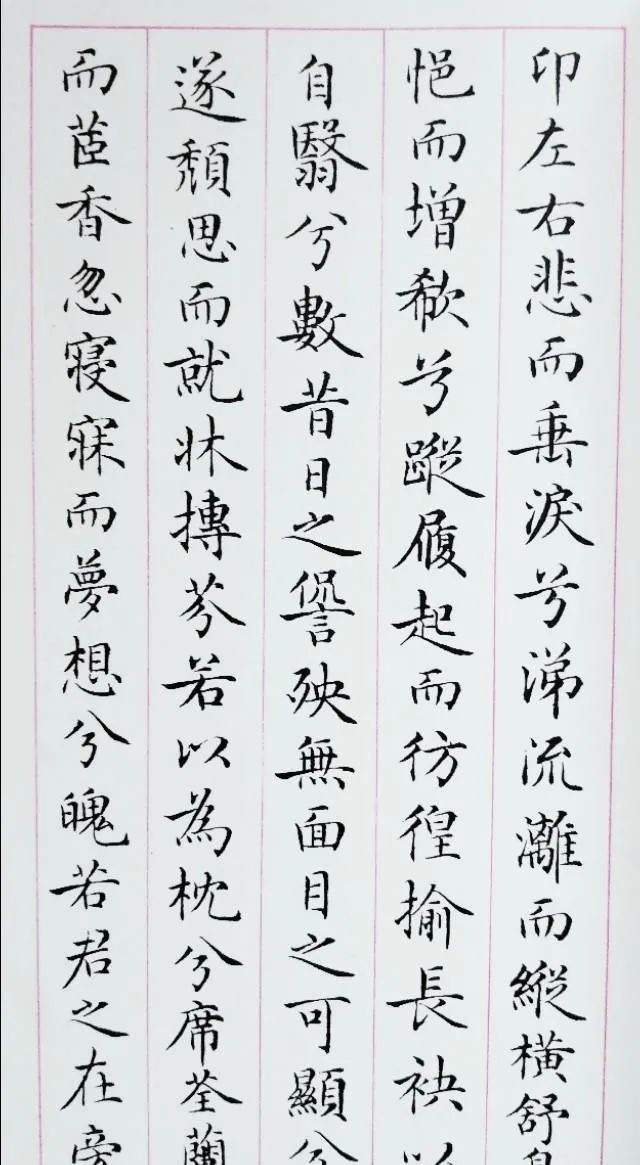 卬左右悲而垂淚兮涕流灕而縱橫舒息
悒而增欷兮蹝履起而彷徨揄長袂以
自翳兮數昔日之諐殃無面目之可顯兮
遂頽思而就牀摶芬若以為枕兮席荃蘭
而茝香忽寑寐而夢想兮魄若君之在旁